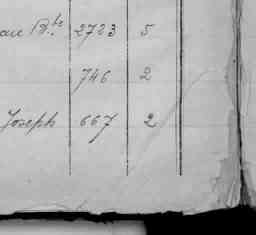 B.te 2723 5
746 2
Joseph 667 2